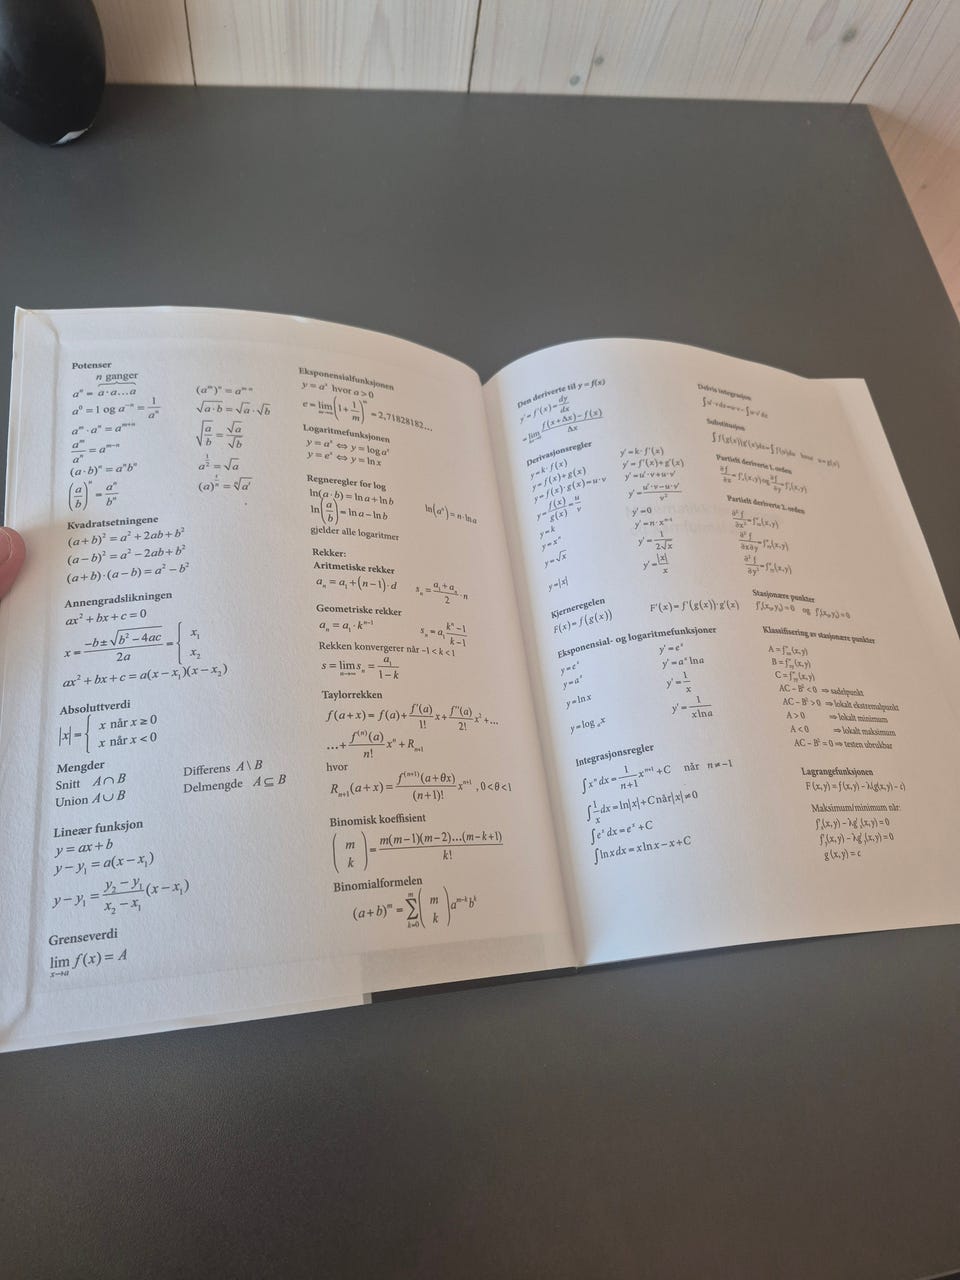 Potenser
n ganger
aⁿ = a·a...a
a⁰ = 1 og a⁻ⁿ = 1/aⁿ
aᵐ·aⁿ = aᵐ⁺ⁿ
aᵐ/aⁿ = aᵐ⁻ⁿ
(a·b)ⁿ = aⁿbⁿ
(a/b)ⁿ = aⁿ/bⁿ
(aᵐ)ⁿ = aᵐ·ⁿ
√a·b = √a·√b
√(a/b) = √a/√b
a^(1/2) = √a
Kvadratsetningene
(a+b)² = a² + 2ab + b²
(a−b)² = a² − 2ab + b²
(a+b)·(a−b) = a² − b²
Annengradslikningen
ax² + bx + c = 0
x = (−b ± √(b² − 4ac))/2a = { x₁ x₂
ax² + bx + c = a(x − x₁)(x − x₂)
Absoluttverdi
|x| = { x når x ≥ 0
x når x < 0
Mengder
Snitt A ∩ B
Union A ∪ B
Differens A \ B
Delmengde A ⊆ B
Lineær funksjon
y = ax + b
y − y₁ = a(x − x₁)
y − y₁ = (y₂ − y₁)/(x₂ − x₁) (x − x₁)
Grenseverdi
lim x→a f(x) = A
Eksponensialfunksjonen
y = aˣ hvor a > 0
e = lim (1 + 1/m)ᵐ = 2,71828182...
Logaritmefunksjonen
y = aˣ ⇔ y = log aˣ
y = eˣ ⇔ y = ln x
Regneregler for log
ln(a·b) = ln a + ln b
ln(a/b) = ln a − ln b
ln(aⁿ) = n·ln a
gjelder alle logaritmer
Rekker:
Aritmetiske rekker
aₙ = a₁ + (n − 1)·d
sₙ = (a₁ + aₙ)/2 · n
Geometriske rekker
aₙ = a₁·kⁿ⁻¹
sₙ = a₁ (kⁿ − 1)/(k − 1)
Rekken konvergerer når −1 < k < 1
s = lim n→∞ sₙ = a₁/(1 − k)
Taylorrekken
f(a + x) = f(a) + f'(a)/1! x + f''(a)/2! x² + ...
... + f⁽ⁿ⁾(a)/n! xⁿ + Rₙ₊₁
hvor
Rₙ₊₁(a + x) = f⁽ⁿ⁺¹⁾(a + θx)/(n + 1)! xⁿ⁺¹ , 0 < θ < 1
Binomisk koeffisient
(m k) = m(m−1)(m−2)...(m−k+1)/k!
Binomialformelen
(a + b)ᵐ = Σ k=0 m (m k) aᵐ⁻ᵏbᵏ
Den deriverte til y = f(x)
y' = f'(x) = dy/dx
= lim (f(x + Δx) − f(x))/Δx
Derivasjonsregler
y = k·f(x) y' = k·f'(x)
y = f(x) + g(x) y' = f'(x) + g'(x)
y = f(x)·g(x) = u·v y' = u'·v + u·v'
y = f(x)/g(x) = u/v y' = (u'·v − u·v')/v²
y = k y' = 0
y = xⁿ y' = n·xⁿ⁻¹
y = √x y' = 1/2√x
y = |x| y' = |x|/x
Kjerneregelen
F(x) = f(g(x)) F'(x) = f'(g(x))·g'(x)
Eksponensial- og logaritmefunksjoner
y = eˣ y' = eˣ
y = aˣ y' = aˣ ln a
y = ln x y' = 1/x
y = logₐx y' = 1/(x ln a)
Integrasjonsregler
∫xⁿ dx = 1/(n+1) xⁿ⁺¹ + C når n ≠ −1
∫1/x dx = ln|x| + C når|x| ≠ 0
∫eˣ dx = eˣ + C
∫ln x dx = x ln x − x + C
Delvis integrasjon
∫u'·v dx = u·v − ∫u·v' dx
Substitusjon
∫f(g(x))g'(x)dx = ∫f(u)du hvor u = g(x)
Partielt deriverte 1. orden
∂f/∂x = f'ₓ(x, y) og ∂f/∂y = f'ᵧ(x, y)
Partielt deriverte 2. orden
Stasjonære punkter
f'ₓ(x₀, y₀) = 0 og f'ᵧ(x₀, y₀) = 0
Klassifisering av stasjonære punkter
A = f''ₓₓ(x, y)
B = f''ₓᵧ(x, y)
C = f''ᵧᵧ(x, y)
AC − B² < 0 ⇒ sadelpunkt
AC − B² > 0 ⇒ lokalt ekstremalpunkt
A > 0 ⇒ lokalt minimum
A < 0 ⇒ lokalt maksimum
AC − B² = 0 ⇒ testen ubrukbar
Lagrangefunksjonen
F(x, y) = f(x, y) − λ(g(x, y) − c)
Maksimum/minimum når:
f'ₓ(x, y) − λg'ₓ(x, y) = 0
f'ᵧ(x, y) − λg'ᵧ(x, y) = 0
g(x, y) = c